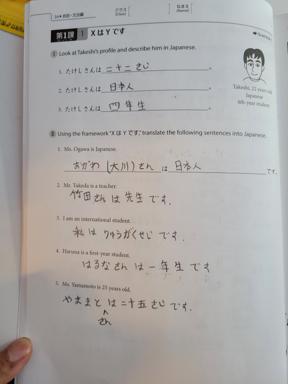 54 ▶ 読解・文法編
クラス
(Class)
なまえ
(Name)
第1課 1 XはYです
Ⅰ Look at Takeshi's profile and describe him in Japanese.
1. たけしさんは 二十二さい 。
2. たけしさんは 日本人 。
3. たけしさんは 四年生 。
Takeshi, 22 years old
Japanese
4th-year student
Ⅱ Using the framework "XはYです," translate the following sentences into Japanese.
1. Ms. Ogawa is Japanese.
おがわ (大川) さん は 日本人 です。
2. Mr. Takeda is a teacher.
竹田さんは先生です.
3. I am an international student.
私は りゅうがくせじです.
4. Haruna is a first-year student.
はるなさんは一年生です
5. Ms. Yamamoto is 25 years old.
やままとは二十五さいです.
^
さん